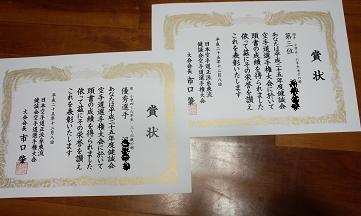 賞状
第三位
あなたは平成二十五年度健誠会
空手道選手権大会に於いて
頭書の成績を得られました
依って茲にその栄誉を讃え
これを表彰いたします
平成二十五年十二月八日
日本空手道正派糸東流
健誠会空手道選手権大会
大会会長 市口 肇
賞状
優秀選手
あなたは平成二十五年度健誠会
空手道選手権大会に於いて
頭書の成績を得られました
依って茲にその栄誉を讃え
これを表彰いたします
平成二十五年十二月八日
日本空手道正派糸東流
健誠会空手道選手権大会
大会会長 市口 肇